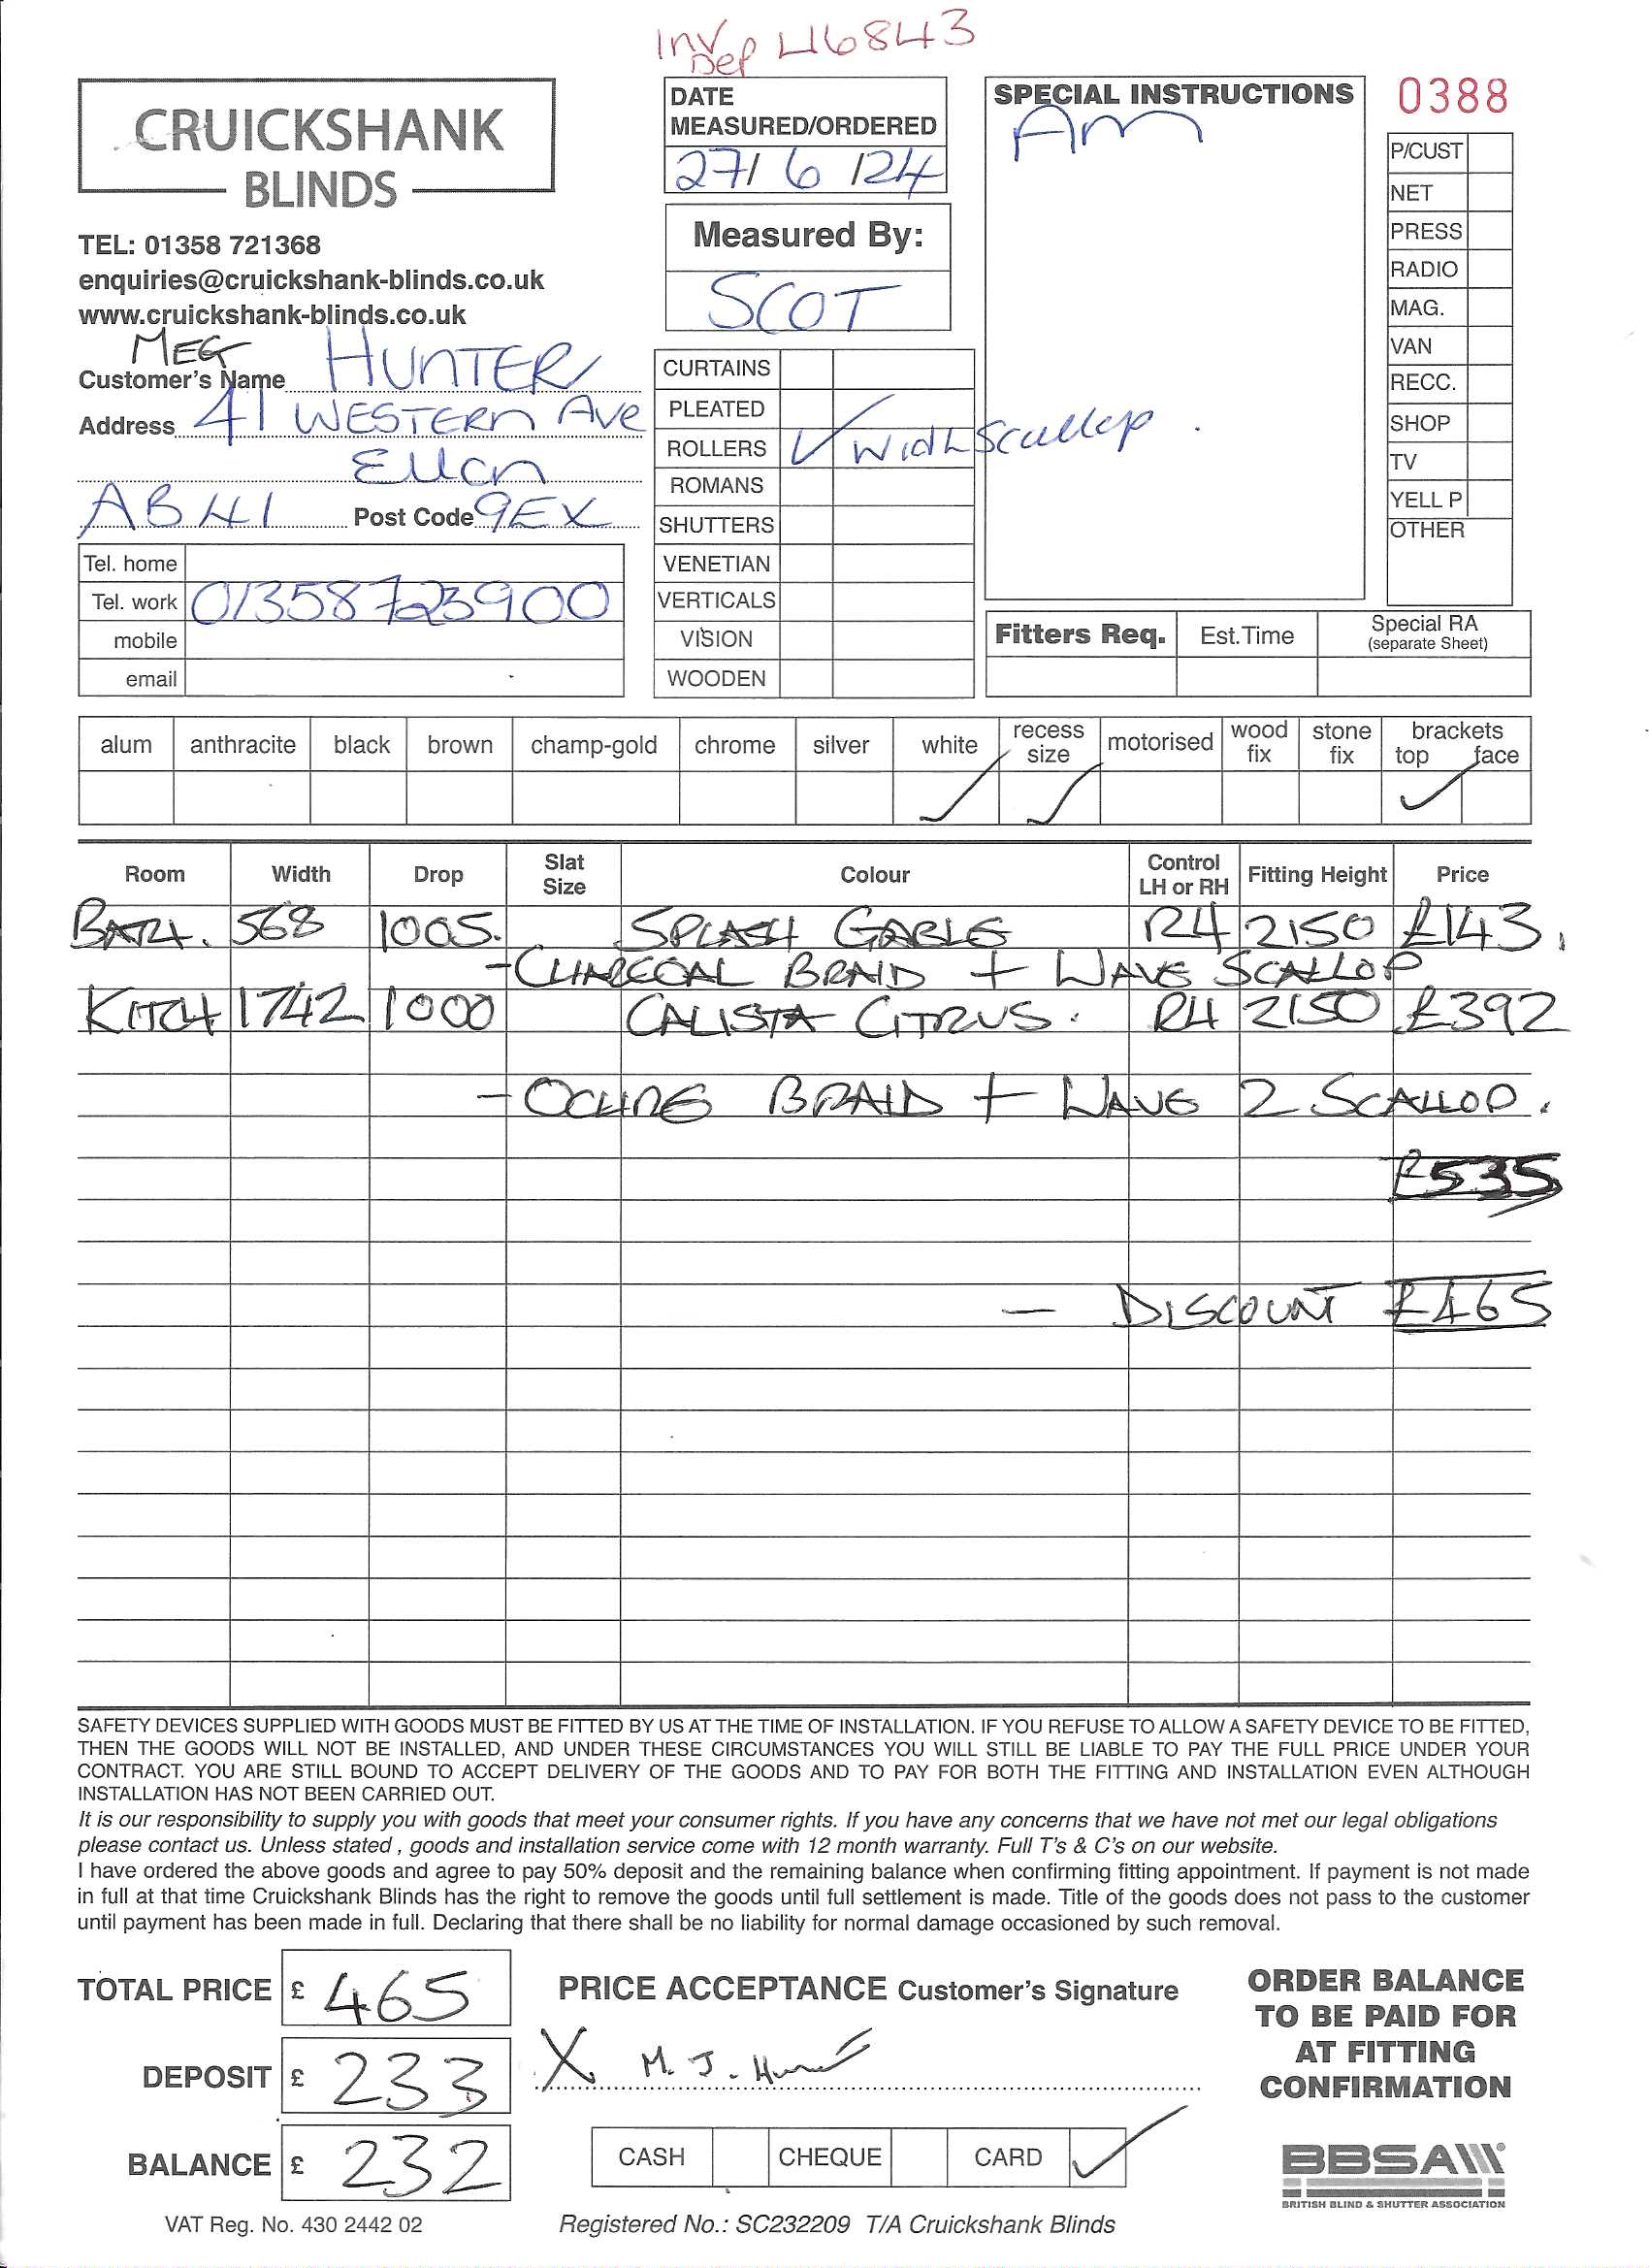 Inv Dep 46843
CRUICKSHANK
BLINDS
TEL: 01358 721368
enquiries@cruickshank-blinds.co.uk
www.cruickshank-blinds.co.uk
DATE
MEASURED/ORDERED
27/6/24
Measured By:
SCOT
SPECIAL INSTRUCTIONS
Am
0388
P/CUST
NET
PRESS
RADIO
MAG.
VAN
RECC.
SHOP
TV
YELL P
OTHER
Customer's Name MEG HUNTER
Address 41 WESTERN Ave
Ellon
AB41 Post Code 9EX
Tel. home
Tel. work 01358723900
mobile
email
CURTAINS
PLEATED
ROLLERS ✓ With Scallop.
ROMANS
SHUTTERS
VENETIAN
VERTICALS
VISION
WOODEN
Fitters Req. Est.Time Special RA
(separate Sheet)
alum anthracite black brown champ-gold chrome silver white recess size motorised wood fix stone fix brackets top face
✓ ✓ ✓
Room Width Drop Slat Size Colour Control LH or RH Fitting Height Price
BATH. 568 1005. SPLASH GABLE RH 2150 £143.
- CHARCOAL BRAID + WAVE SCALLOP
KITCH 1742 1000 CALISTA CITRUS. RH 2150 £392
- OCHRE BRAID + WAVE 2 SCALLOP.
£535
- DISCOUNT £465
SAFETY DEVICES SUPPLIED WITH GOODS MUST BE FITTED BY US AT THE TIME OF INSTALLATION. IF YOU REFUSE TO ALLOW A SAFETY DEVICE TO BE FITTED,
THEN THE GOODS WILL NOT BE INSTALLED, AND UNDER THESE CIRCUMSTANCES YOU WILL STILL BE LIABLE TO PAY THE FULL PRICE UNDER YOUR
CONTRACT. YOU ARE STILL BOUND TO ACCEPT DELIVERY OF THE GOODS AND TO PAY FOR BOTH THE FITTING AND INSTALLATION EVEN ALTHOUGH
INSTALLATION HAS NOT BEEN CARRIED OUT.
It is our responsibility to supply you with goods that meet your consumer rights. If you have any concerns that we have not met our legal obligations
please contact us. Unless stated , goods and installation service come with 12 month warranty. Full T's & C's on our website.
I have ordered the above goods and agree to pay 50% deposit and the remaining balance when confirming fitting appointment. If payment is not made
in full at that time Cruickshank Blinds has the right to remove the goods until full settlement is made. Title of the goods does not pass to the customer
until payment has been made in full. Declaring that there shall be no liability for normal damage occasioned by such removal.
TOTAL PRICE £ 465
DEPOSIT £ 233
BALANCE £ 232
PRICE ACCEPTANCE Customer's Signature
X M. J. Hunter
CASH CHEQUE CARD ✓
ORDER BALANCE
TO BE PAID FOR
AT FITTING
CONFIRMATION
BBSA
BRITISH BLIND & SHUTTER ASSOCIATION
VAT Reg. No. 430 2442 02
Registered No.: SC232209 T/A Cruickshank Blinds